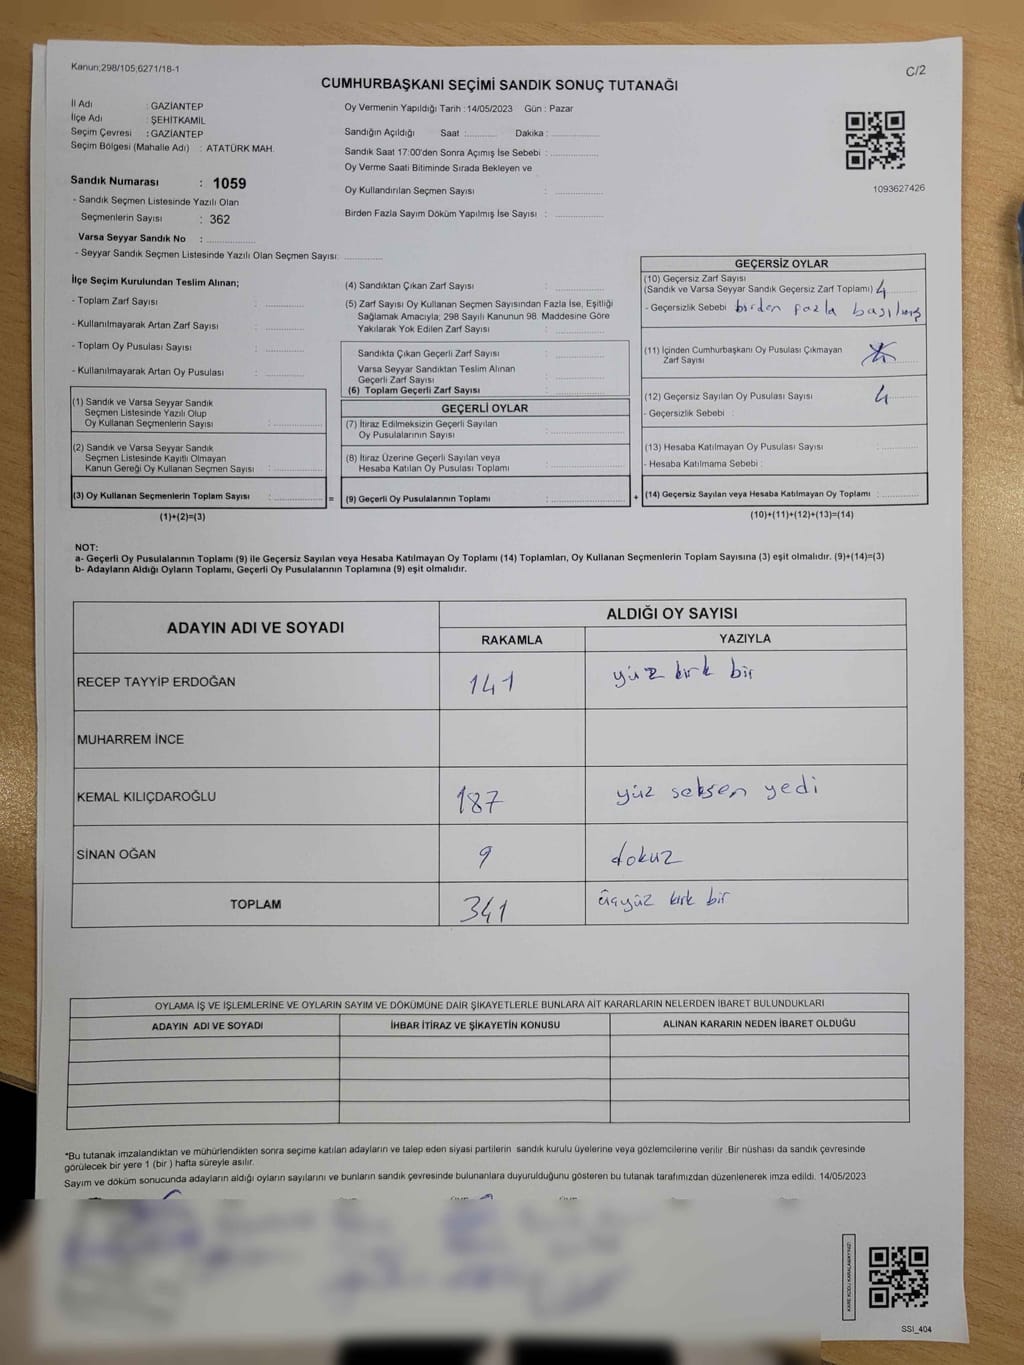 Kanun;298/105;6271/18-1
C/2
CUMHURBAŞKANI SEÇİMİ SANDIK SONUÇ TUTANAĞI
İl Adı : GAZİANTEP
İlçe Adı : ŞEHİTKAMİL
Seçim Çevresi : GAZİANTEP
Seçim Bölgesi (Mahalle Adı) : ATATÜRK MAH.
Sandık Numarası : 1059
- Sandık Seçmen Listesinde Yazılı Olan
Seçmenlerin Sayısı : 362
Varsa Seyyar Sandık No : ..............
- Seyyar Sandık Seçmen Listesinde Yazılı Olan Seçmen Sayısı: ..............
Oy Vermenin Yapıldığı Tarih : 14/05/2023 Gün : Pazar
Sandığın Açıldığı Saat :.......... Dakika : ..............
Sandık Saat 17:00'den Sonra Açımış İse Sebebi : ..............
Oy Verme Saati Bitiminde Sırada Bekleyen ve
Oy Kullandırılan Seçmen Sayısı : ..............
Birden Fazla Sayım Döküm Yapılmış İse Sayısı : ..............
1093627426
İlçe Seçim Kurulundan Teslim Alınan;
- Toplam Zarf Sayısı : ..............
- Kullanılmayarak Artan Zarf Sayısı : ..............
- Toplam Oy Pusulası Sayısı : ..............
- Kullanılmayarak Artan Oy Pusulası : ..............
(1) Sandık ve Varsa Seyyar Sandık
Seçmen Listesinde Yazılı Olup
Oy Kullanan Seçmenlerin Sayısı : ..............
(2) Sandık ve Varsa Seyyar Sandık
Seçmen Listesinde Kayıtlı Olmayan
Kanun Gereği Oy Kullanan Seçmen Sayısı : ..............
(3) Oy Kullanan Seçmenlerin Toplam Sayısı : ..............
(1)+(2)=(3)
(4) Sandıktan Çıkan Zarf Sayısı : ..............
(5) Zarf Sayısı Oy Kullanan Seçmen Sayısından Fazla İse, Eşitliği
Sağlamak Amacıyla; 298 Sayılı Kanunun 98. Maddesine Göre
Yakılarak Yok Edilen Zarf Sayısı : ..............
Sandıkta Çıkan Geçerli Zarf Sayısı : ..............
Varsa Seyyar Sandıktan Teslim Alınan
Geçerli Zarf Sayısı : ..............
(6) Toplam Geçerli Zarf Sayısı : ..............
GEÇERLİ OYLAR
(7) İtiraz Edilmeksizin Geçerli Sayılan
Oy Pusulalarının Sayısı : ..............
(8) İtiraz Üzerine Geçerli Sayılan veya
Hesaba Katılan Oy Pusulası Toplamı : ..............
= (9) Geçerli Oy Pusulalarının Toplamı : ..............
GEÇERSİZ OYLAR
(10) Geçersiz Zarf Sayısı
(Sandık ve Varsa Seyyar Sandık Geçersiz Zarf Toplamı) 4
- Geçersizlik Sebebi : birden fazla basılmış
(11) İçinden Cumhurbaşkanı Oy Pusulası Çıkmayan
Zarf Sayısı
(12) Geçersiz Sayılan Oy Pusulası Sayısı : 4
- Geçersizlik Sebebi :
(13) Hesaba Katılmayan Oy Pusulası Sayısı : ..............
- Hesaba Katılmama Sebebi :
+ (14) Geçersiz Sayılan veya Hesaba Katılmayan Oy Toplamı : ..............
(10)+(11)+(12)+(13)=(14)
NOT:
a- Geçerli Oy Pusulalarının Toplamı (9) ile Geçersiz Sayılan veya Hesaba Katılmayan Oy Toplamı (14) Toplamları, Oy Kullanan Seçmenlerin Toplam Sayısına (3) eşit olmalıdır. (9)+(14)=(3)
b- Adayların Aldığı Oyların Toplamı, Geçerli Oy Pusulalarının Toplamına (9) eşit olmalıdır.
ADAYIN ADI VE SOYADI
ALDIĞI OY SAYISI
RAKAMLA YAZIYLA
RECEP TAYYİP ERDOĞAN 141 yüz kırk bir
MUHARREM İNCE
KEMAL KILIÇDAROĞLU 187 yüz seksen yedi
SİNAN OĞAN 9 dokuz
TOPLAM 341 üçyüz kırk bir
OYLAMA İŞ VE İŞLEMLERİNE VE OYLARIN SAYIM VE DÖKÜMÜNE DAİR ŞİKAYETLERLE BUNLARA AİT KARARLARIN NELERDEN İBARET BULUNDUKLARI
ADAYIN ADI VE SOYADI İHBAR İTİRAZ VE ŞİKAYETİN KONUSU ALINAN KARARIN NEDEN İBARET OLDUĞU
*Bu tutanak imzalandıktan ve mühürlendikten sonra seçime katılan adayların ve talep eden siyasi partilerin sandık kurulu üyelerine veya gözlemcilerine verilir .Bir nüshası da sandık çevresinde
görülecek bir yere 1 (bir ) hafta süreyle asılır.
Sayım ve döküm sonucunda adayların aldığı oyların sayılarını ve bunların sandık çevresinde bulunanlara duyurulduğunu gösteren bu tutanak tarafımızdan düzenlenerek imza edildi. 14/05/2023
KARE KODU KARALAMAYINIZ!
SSI_404